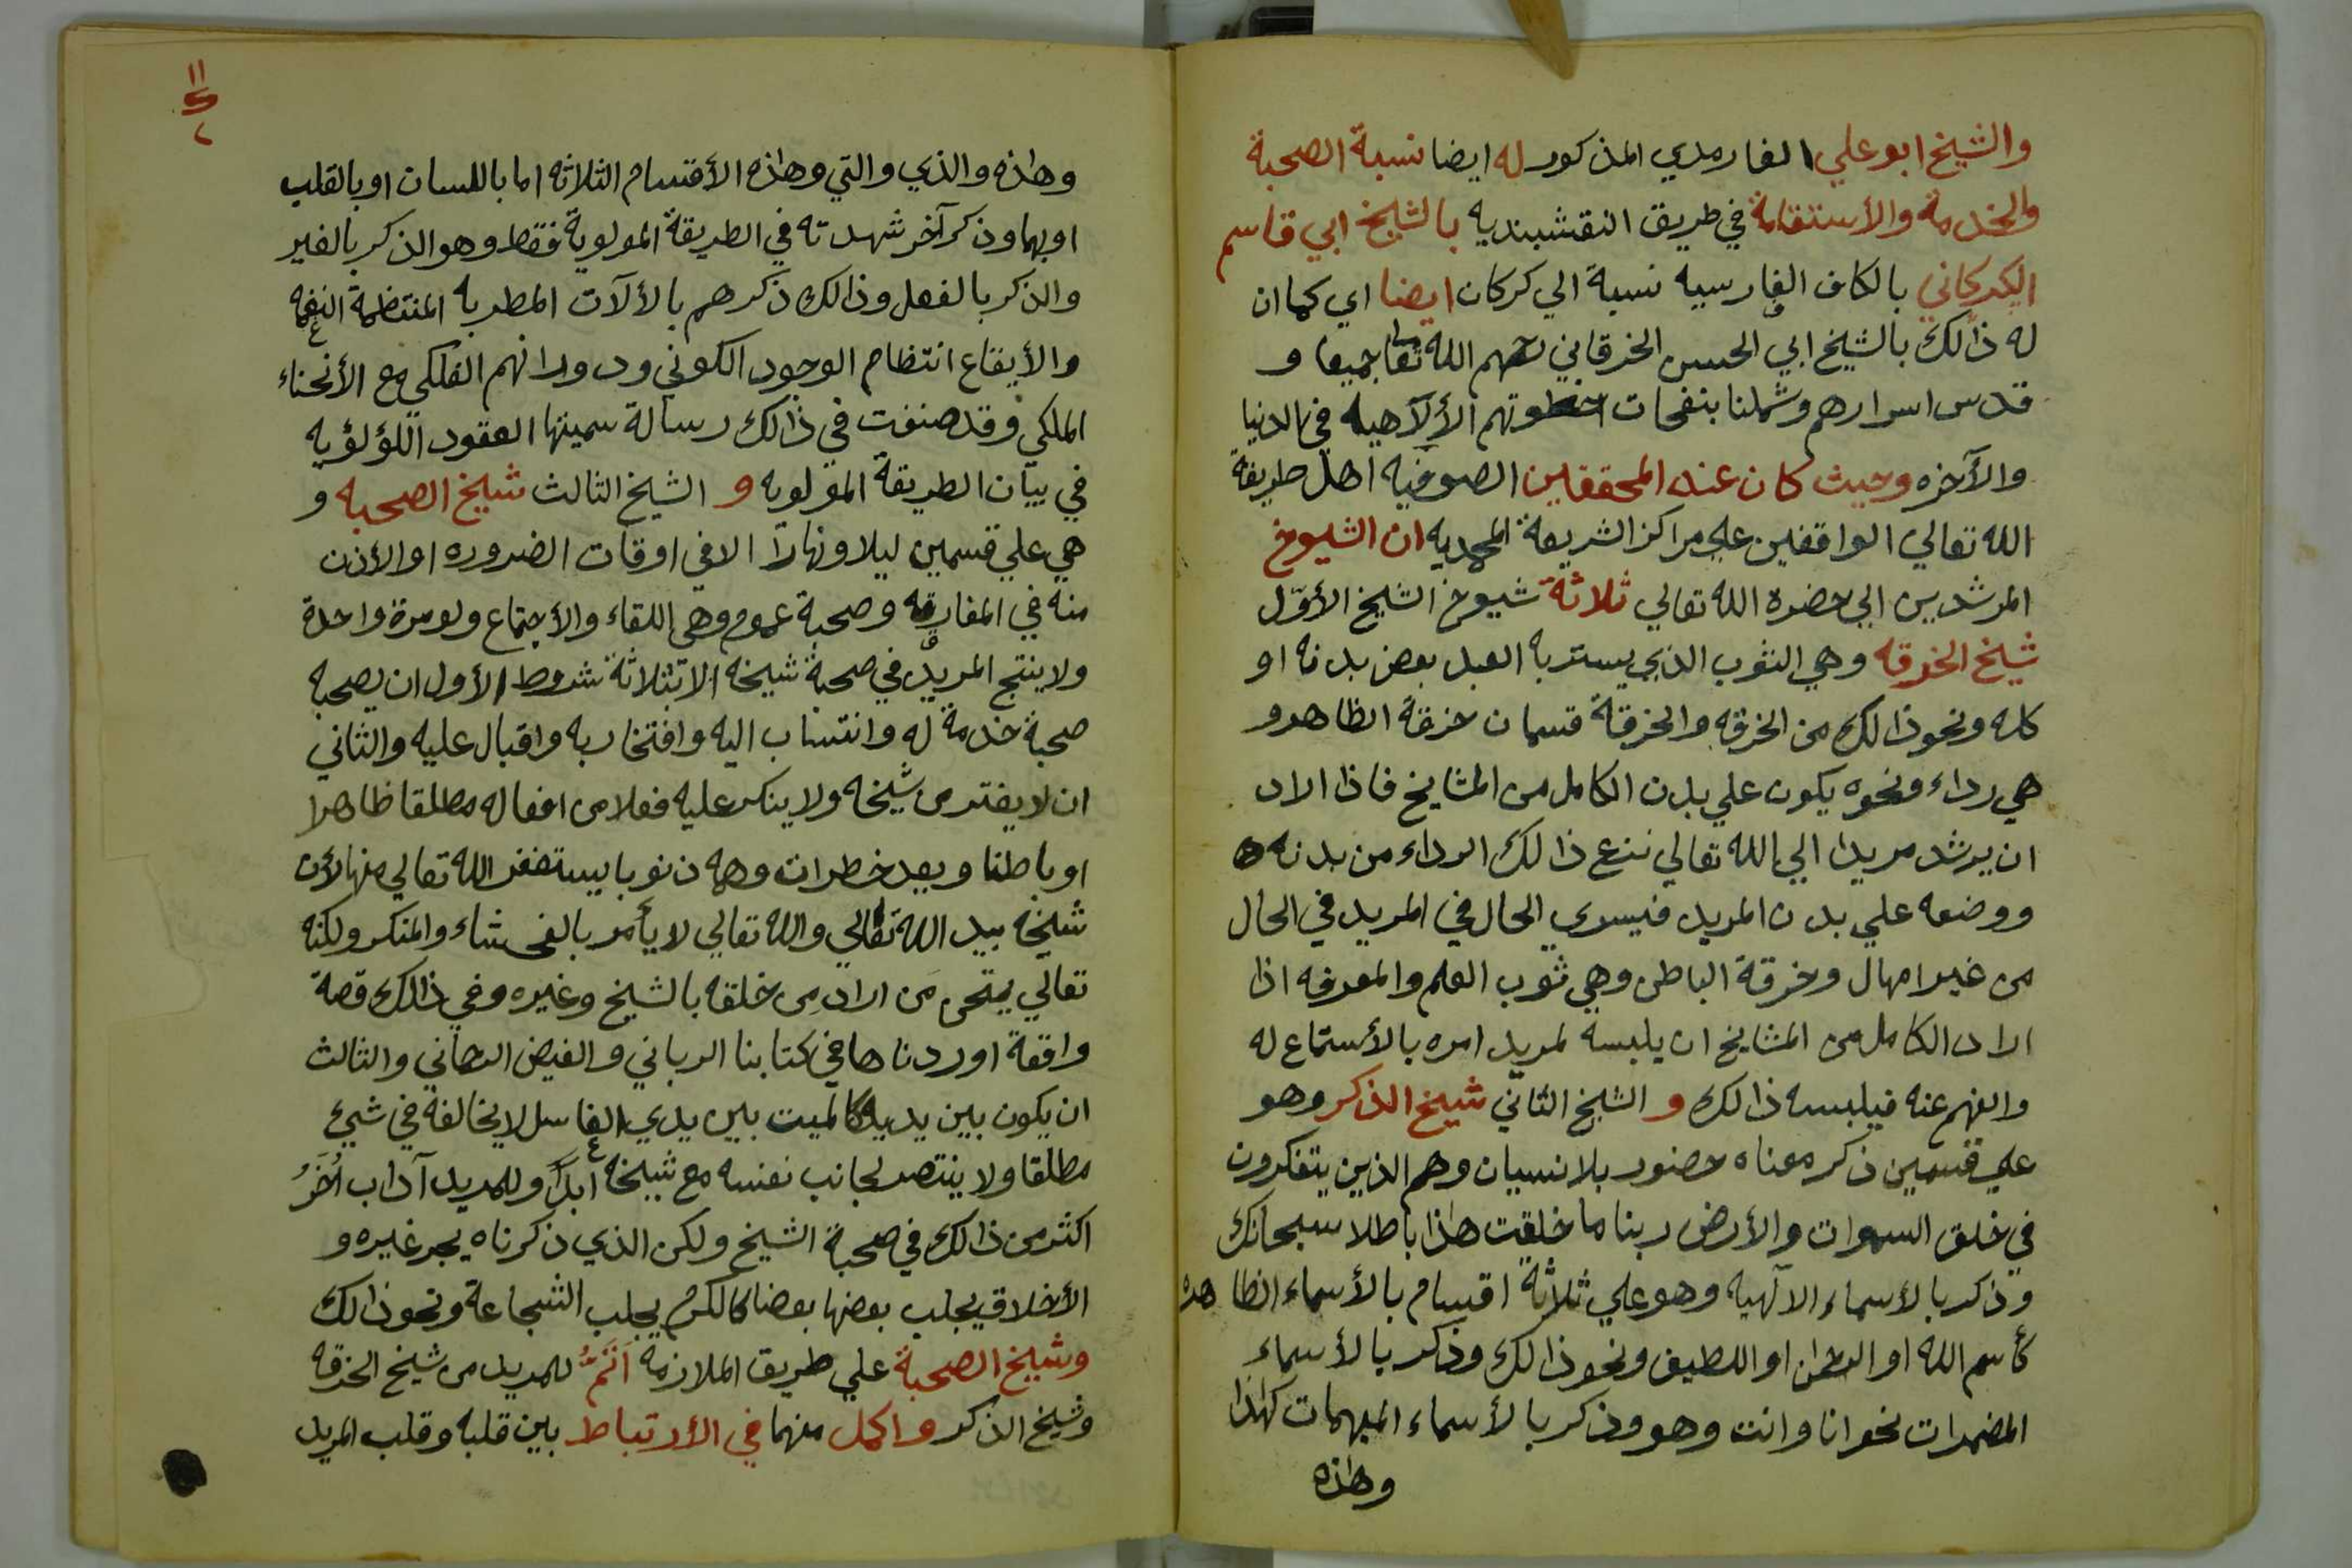 والشيخ ابو علي الفارمدي المذكور له ايضا نسبة الصحبة
والخدمة والأستقامة في طريق النقشبنديه بالشيخ ابي قاسم
الكركاني بالكاف الفارسيه نسبة الي كركان ايضا اي كما ان
له ذالك بالشيخ ابي الحسن الخرقاني رحمهم الله تعالى جميعا و
قدس اسرارهم وشملنا بنفحات الألآهيه في الدنيا
والآخره وحيث كان عند المحققين الصوفيه اهل طريقة
الله تعالي الواقفين علي مراكز الشريعة المحمديه ان الشيوخ
المرشدين الي حضرة الله تعالي ثلاثة شيوخ الشيخ الأوّل
شيخ الخرقه وهي الثوب الذي يستر به العبد بعض بدنه او
كله ونحو ذالك من الخرقه والخرقة قسمان خرقة الظاهر و
هي رداء ونحوه يكون علي بدن الكامل من المشايخ فاذا اراد
ان يرشد مريدا الي الله تعالي ننزع ذالك الرداء من بدنه
ووضعه علي بدن المريد فيسري الحال في المريد في الحال
من غير امهال وخرقة الباطن وهي ثوب العلم والمعرفه اذا
اراد الكامل من المشايخ ان يلبسه لمريد امره بالأستماع له
والفهم عنه فيلبسه ذالك و الشيخ الثاني شيخ الذكر وهو
علي قسمين ذكر معناه حضور بلا نسيان وهم الذين يتفكرون
في خلق السموات والأرض ربنا ما خلقت هاذا باطلا سبحانك
وذكر بالأسماء الالهيه وهو علي ثلاثة اقسام بالأسماء الظاهره
كأسم الله او الرحمان او اللطيف ونحو ذالك وذكر بالأسماء
المضمرات نحو انا وانت وهو وذكر بالأسماء المبهمات كهاذا
وهاذه
١١
٢
وهاذه والذي والتي وهاذه الأقسام الثلاثه اما باللسان او بالقلب
او بهما وذكر آخر شهدته في الطريقة المولوية فقط وهو الذكر بالغير
والذكر بالفعل وذالك ذكرهم بالألآت المطربه المنتظمة النغمه
والأيقاع انتظام الوجود الكوني ودورانهم الفلكي مع الأنحناء
الملكي وقد صنفت في ذالك رسالة سميتها العقود اللؤلؤيه
في بيان الطريقة المولويه و الشيخ الثالث شيخ الصحبه و
هي علي قسمين ليلا ونهارا الا في اوقات الضروره او الأذن
منه في المفارقه وصحبة عموم وهي اللقاء والأجتماع ولو مرة واحدة
ولا ينتج المريد في صحبة شيخه الا بثلاثة شروط الأول ان يصحبه
صحبة خدمة له وانتساب اليه وافتخار به واقبال عليه والثاني
ان لا يفتر من شيخه ولا ينكر عليه فعلا من افعاله مطلقا ظاهرا
او باطنا ويعد خطرات وهمه ذنوبا يستغفر الله تعالي منها لأن
شيخه بيد الله تعالي والله تعالي لا يأمر بالفحشاء والمنكر ولكنه
تعالي يمتحن مَن اراد مِن خلقه بالشيخ وغيره وفي ذالك قصة
واقعة اوردناها في كتابنا الرباني والفيض الرحماني والثالث
ان يكون بين يديه كالميت بين يدي الغاسل لا يخالفة في شيئ
مطلقا ولا ينتصر لجانب نفسه مع شيخه ابدًا وللمريد آداب أُخَرُ
اكثر من ذالك في صحبة الشيخ ولكن الذي ذكرناه يجر غيره و
الأخلاق يجلب بعضها بعضا كالكرم يجلب الشجاعة ونحو ذالك
وشيخ الصحبة علي طريق الملازمة اَتَمُّ للمريد من شيخ الخرقه
وشيخ الذكر واكمل منهما في الأرتباط بين قلبه وقلب المريد